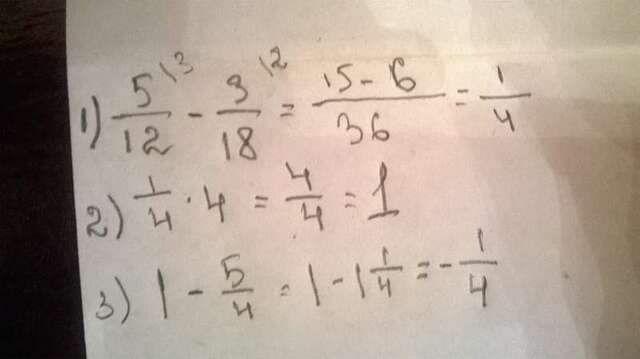 1) 5\3/12 - 3\2/18 = 15-6/36 = 1/4
2) 1/4 · 4 = 4/4 = 1
3) 1 - 5/4 = 1 - 1 1/4 = - 1/4